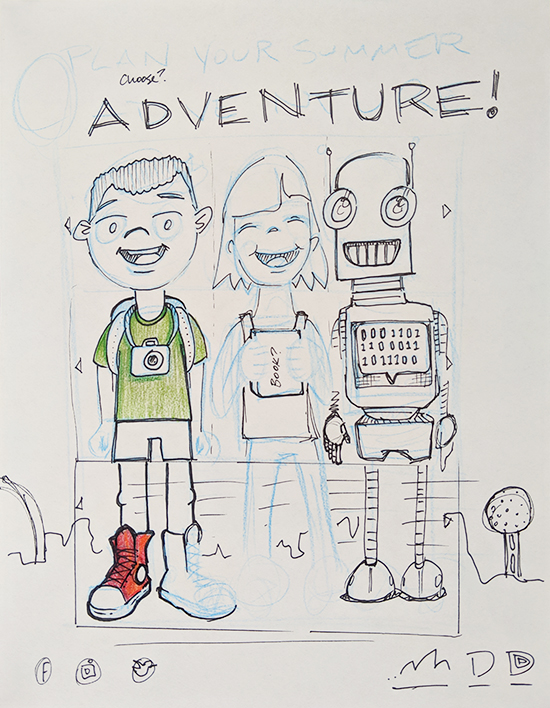 PLAN YOUR SUMMER
CHOOSE?
ADVENTURE!
BOOK?
000 1101
1110011
1011100
f D D